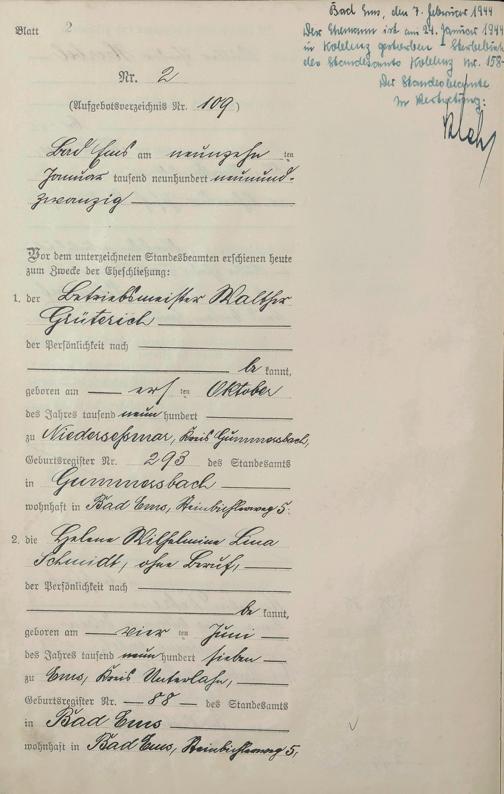 Blatt 2
Bad Ems, den 7. Februar 1944
Der Ehemann ist am 24. Januar 1944
in Koblenz gestorben - Sterbebuch
des Standesamts Koblenz Nr. 158-
Der Standesbeamte
In Vertretung:
Nr. 2
(Aufgebotsverzeichnis Nr. 109)
Bad Ems am neunzehn ten
Januar tausend neunhundert neunund-
zwanzig
Vor dem unterzeichneten Standesbeamten erschienen heute
zum Zwecke der Eheschließung:
1. der Betriebsmeister Walther
Grüterich
der Persönlichkeit nach
be kannt,
geboren am ers ten Oktober
des Jahres tausend neun hundert
zu Niederseßmar, Kreis Gummersbach,
Geburtsregister Nr. 293 des Standesamts
in Gummersbach
wohnhaft in Bad Ems, 5.
2. die Helene Wilhelmine Lina
Schmidt, ohne Beruf,
der Persönlichkeit nach
be kannt,
geboren am vier ten Juni
des Jahres tausend neun hundert sieben
zu Ems, Kreis Unterlahn,
Geburtsregister Nr. 88 des Standesamts
in Bad Ems
wohnhaft in Bad Ems, 5,